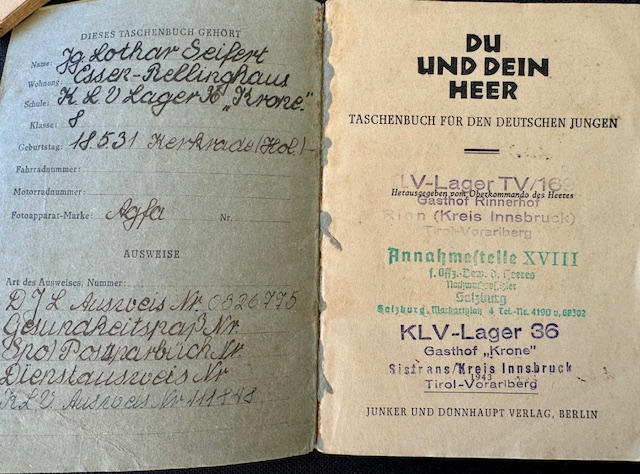 DIESES TASCHENBUCH GEHÖRT
Name: Jg. Lothar Seifert
Wohnung: Essen-Rellinghaus
Schule: K L V Lager 36 „Krone"
Klasse: 8
Geburtstag: 18.5.31 Kerkrade (Hol.)
Fahrradnummer:
Motorradnummer:
Fotoapparat-Marke: Agfa Nr.
AUSWEISE
Art des Ausweises, Nummer:
Ausweis Nr. 0826775
Gesundheitspaß Nr
Nr.
Dienstausweis Nr
K L V Ausweis Nr 411848
DU
UND DEIN
HEER
TASCHENBUCH FÜR DEN DEUTSCHEN JUNGEN
LV-Lager TV/16
Herausgegeben vom Oberkommando des Heeres
Gasthof Rinnerhof
Rinn (Kreis Innsbruck)
Tirol-Vorarlberg
Annahmestelle XVIII
f. Offz.-Bew. d. Heeres
Salzburg
Salzburg, 4 Tel.-Nr. 4190 u.
KLV-Lager 36
Gasthof „Krone"
Sistrans/Kreis Innsbruck
1943
Tirol-Vorarlberg
JUNKER UND DÜNNHAUPT VERLAG, BERLIN